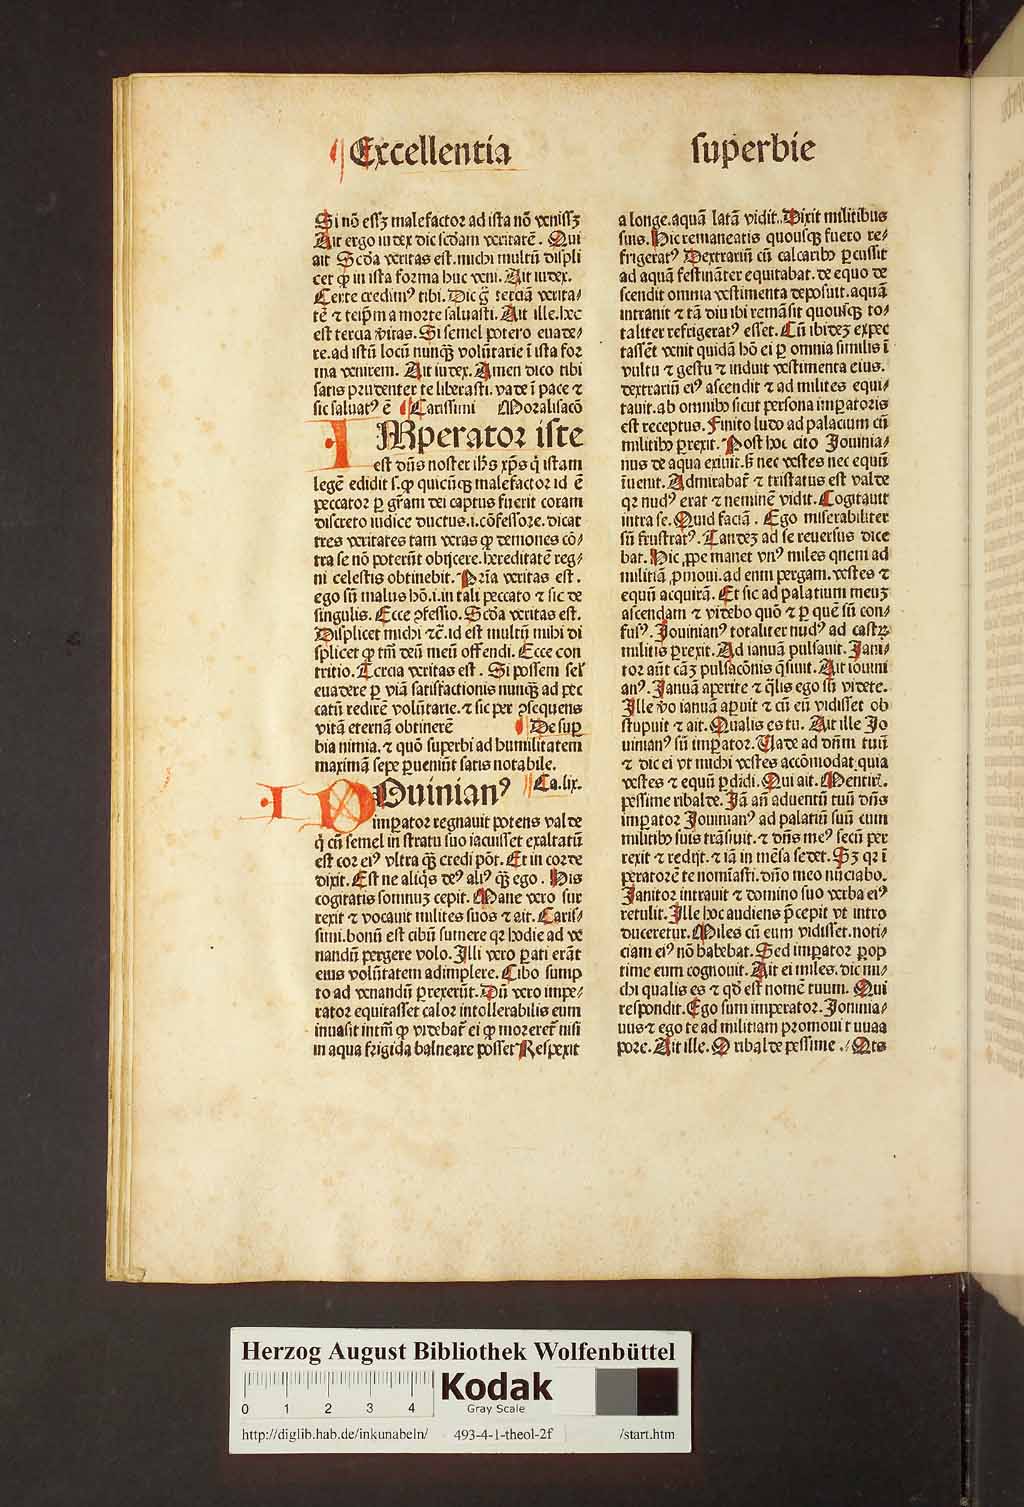 Excellentia superbie
Si nō essꝫ malefactor ad ista nō venissꝫ
Ait ergo iudex dic scd̄am veritatē. Qui
ait Scd̄a veritas est. michi multū displi
cet ꝙ in ista forma huc veni. Ait iudex.
Certe credimꝰ tibi. Dic g̃ terciā verita⸗
tē ⁊ teip̄m a morte saluasti. Ait ille. hec
est tercia v̄itas. Si semel potero euade⸗
re. ad istū locū nunqꝫ volūtarie ī ista for
ma venirem. Ait iudex. Amen dico tibi
satis prudenter te liberasti. vade ī pace ⁊
sic saluatꝰ ē Carissimi Moralisacō
I Mperator iste
est dn̄s noster ih̄s xp̄s q̇ istam
legē edidit s. ꝙ quicūqꝫ malefactor id ē
peccator ꝑ gr̄am dei captus fuerit coram
discreto iudice ductus. i. cōfessore. dicat
tres veritates tam veras ꝙ demones cō⸗
tra se nō poterūt obijcere. hereditatē reg⸗
ni celestis obtinebit. Pr̄ia veritas est.
ego sū malus hō. i. in tali peccato ⁊ sic de
singulis. Ecce ꝯfessio. Scd̄a veritas est.
Displicet michi ⁊c̄. id est multū mihi di
splicet ꝙ tm̄ deū meū offendi. Ecce con
tritio. Tercia veritas est. Si possem sel̄
euadere ꝑ viā satisfactionis nunqꝫ ad pec
catū redirē volūtarie. ⁊ sic per ꝯsequens
vitā eternā obtinerē De sup
bia nimia. ⁊ quō superbi ad humilitatem
maximā sepe ꝑueniūt satis notabile.
I Ouinianꝰ Ca. lix.
imꝑator regnauit potens valde
q̇ cū semel in stratu suo iacuisset exaltatū
est cor eiꝰ vltra qꝫ credi pōt. Et in corde
dixit. Est ne aliq̇s deꝰ aliꝰ qꝫ ego. His
cogitatis somnuꝫ cepit. Mane vero sur
rexit ⁊ vocauit milites suos ⁊ ait. Caris⸗
simi. bonū est cibū sumere qꝛ hodie ad ve
nandū pergere volo. Illi vero ꝑati erāt
eius volūtatem adimplere. Cibo sump
to ad venandū ꝑrexerūt. Dū vero impe⸗
rator equitasset calor intollerabilis eum
inuasit intm̄ ꝙ videbat̄ ei ꝙ moreret̄ nisi
in aqua frigida balneare posset Respexit
a longe. aquā latā vidit. Dixit militibus
suis. Hic remaneatis quousqꝫ fuero re⸗
frigeratꝰ Dextrariū cū calcaribꝰ ꝑcussit
ad aquā festināter equitabat. de equo de
scendit omnia vestimenta deposuit. aquā
intrauit ⁊ tā diu ibi remāsit quousqꝫ to⸗
taliter refrigeratꝰ esset. Cū ibideꝫ expec
tassēt venit quidā hō ei ꝑ omnia similis ī
vultu ⁊ gestu ⁊ induit vestimenta eius.
dextrariū eiꝰ ascendit ⁊ ad milites equi⸗
tauit. ab omnibꝰ sicut persona imꝑatoris
est receptus. Finito ludo ad palacium cū
militibꝰ ꝑrexit. Post hoc cito Jouinia⸗
nus de aqua exiuit. sꝫ nec vestes nec equū
īuenit. Admirabat̄ ⁊ tristatus est valde
qꝛ nudꝰ erat ⁊ neminē vidit. Cogitauit
intra se. Quid faciā. Ego miserabiliter
sū frustratꝰ. Tandeꝫ ad se reuersus dice
bat. Hic ꝓpe manet vnꝰ miles quem ad
militiā ꝓmoui. ad eum pergam. vestes ⁊
equū acquirā. Et sic ad palatium meuꝫ
ascendam ⁊ videbo quō ⁊ ꝑ quē sū con⸗
fusꝰ. Jouinianꝰ totaliter nudꝰ ad castꝝ
militis ꝑrexit. Ad ianuā pulsauit. Jani⸗
tor aūt cāꝫ pulsacōnis q̄siuit. Ait iouini
anꝰ. Januā aperite ⁊ q̄lis ego sū videte.
Ille v̄o ianuā aꝑuit ⁊ cū eū vidisset ob
stupuit ⁊ ait. Qualis es tu. Ait ille Jo
uinianꝰ sū imꝑator. Vade ad dn̄m tuū
⁊ dic ei vt michi vestes accōmodat quia
vestes ⁊ equū ꝑdidi. Qui ait. Mentiris.
pessime ribalde. Jā añ aduentū tuū dn̄s
imꝑator Jouinianꝰ ad palatiū suū cum
militibꝰ suis trāsiuit. ⁊ dn̄s meꝰ secū per
rexit ⁊ redijt. ⁊ iā in mēsa sedet. Sꝫ qꝛ ī
peratorē te nomīasti. dn̄o meo nūciabo.
Janitor intrauit ⁊ domino suo verba eiꝰ
retulit. Ille hoc audiens p̄cepit vt intro
duceretur. Miles cū eum vidisset. noti⸗
ciam eiꝰ nō habebat. Sed imꝑator ꝑop
time eum cognouit. Ait ei miles. dic mi⸗
chi qualis es ⁊ qd̄ est nomē tuum. Qui
respondit. Ego sum imperator. Jouinia⸗
nus ⁊ ego te ad militiam promoui t uuaa
pore. Ait ille. O ribalde pessime. Qꝫ
Herzog August Bibliothek Wolfenbüttel
0 1 2 3 4
Kodak
Gray Scale
http://diglib.hab.de/inkunabeln/ 493-4-1-theol-2f /start.htm